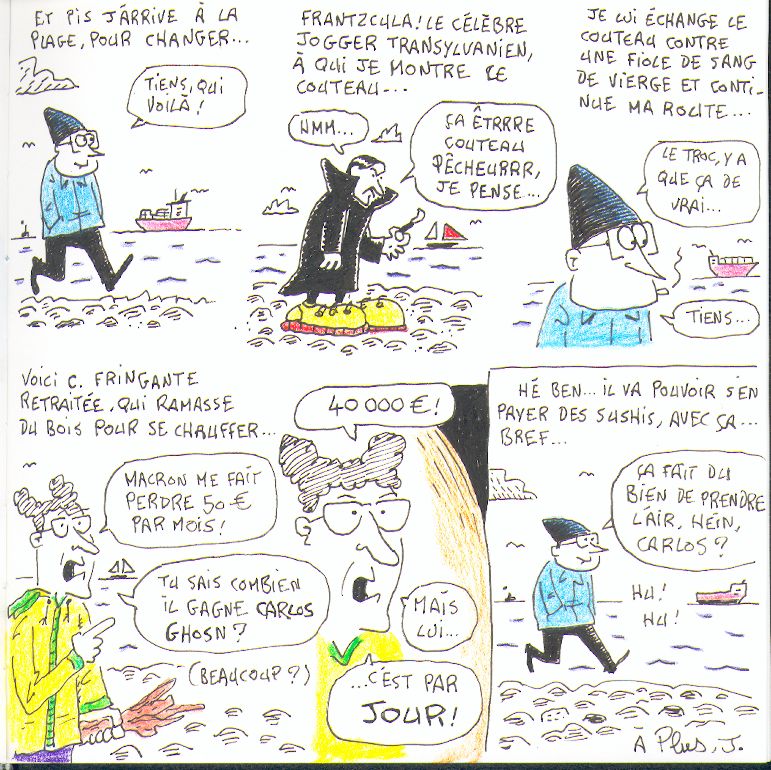 ET PIS J'ARRIVE À LA
PLAGE, POUR CHANGER...
TIENS, QUI
VOILÀ !
FRANTZCULA ! LE CÉLÈBRE
JOGGER TRANSYLVANIEN,
À QUI JE MONTRE LE
COUTEAU...
HMM...
ÇA ÊTRRRE
COUTEAU
PÊCHEURRR,
JE PENSE...
JE LUI ÉCHANGE LE
COUTEAU CONTRE
UNE FIOLE DE SANG
DE VIERGE ET CONTI-
NUE MA ROUTE...
LE TROC, Y A
QUE ÇA DE
VRAI...
TIENS...
VOICI C. FRINGANTE
RETRAITÉE, QUI RAMASSE
DU BOIS POUR SE CHAUFFER...
MACRON ME FAIT
PERDRE 50 €
PAR MOIS !
TU SAIS COMBIEN
IL GAGNE CARLOS
GHOSN ?
(BEAUCOUP ?)
40 000 € !
MAIS
LUI...
...C'EST PAR
JOUR !
HÉ BEN... IL VA POUVOIR S'EN
PAYER DES SUSHIS, AVEC ÇA...
BREF...
ÇA FAIT DU
BIEN DE PRENDRE
L'AIR, HEIN,
CARLOS ?
HU !
HU !
À Plus. J.